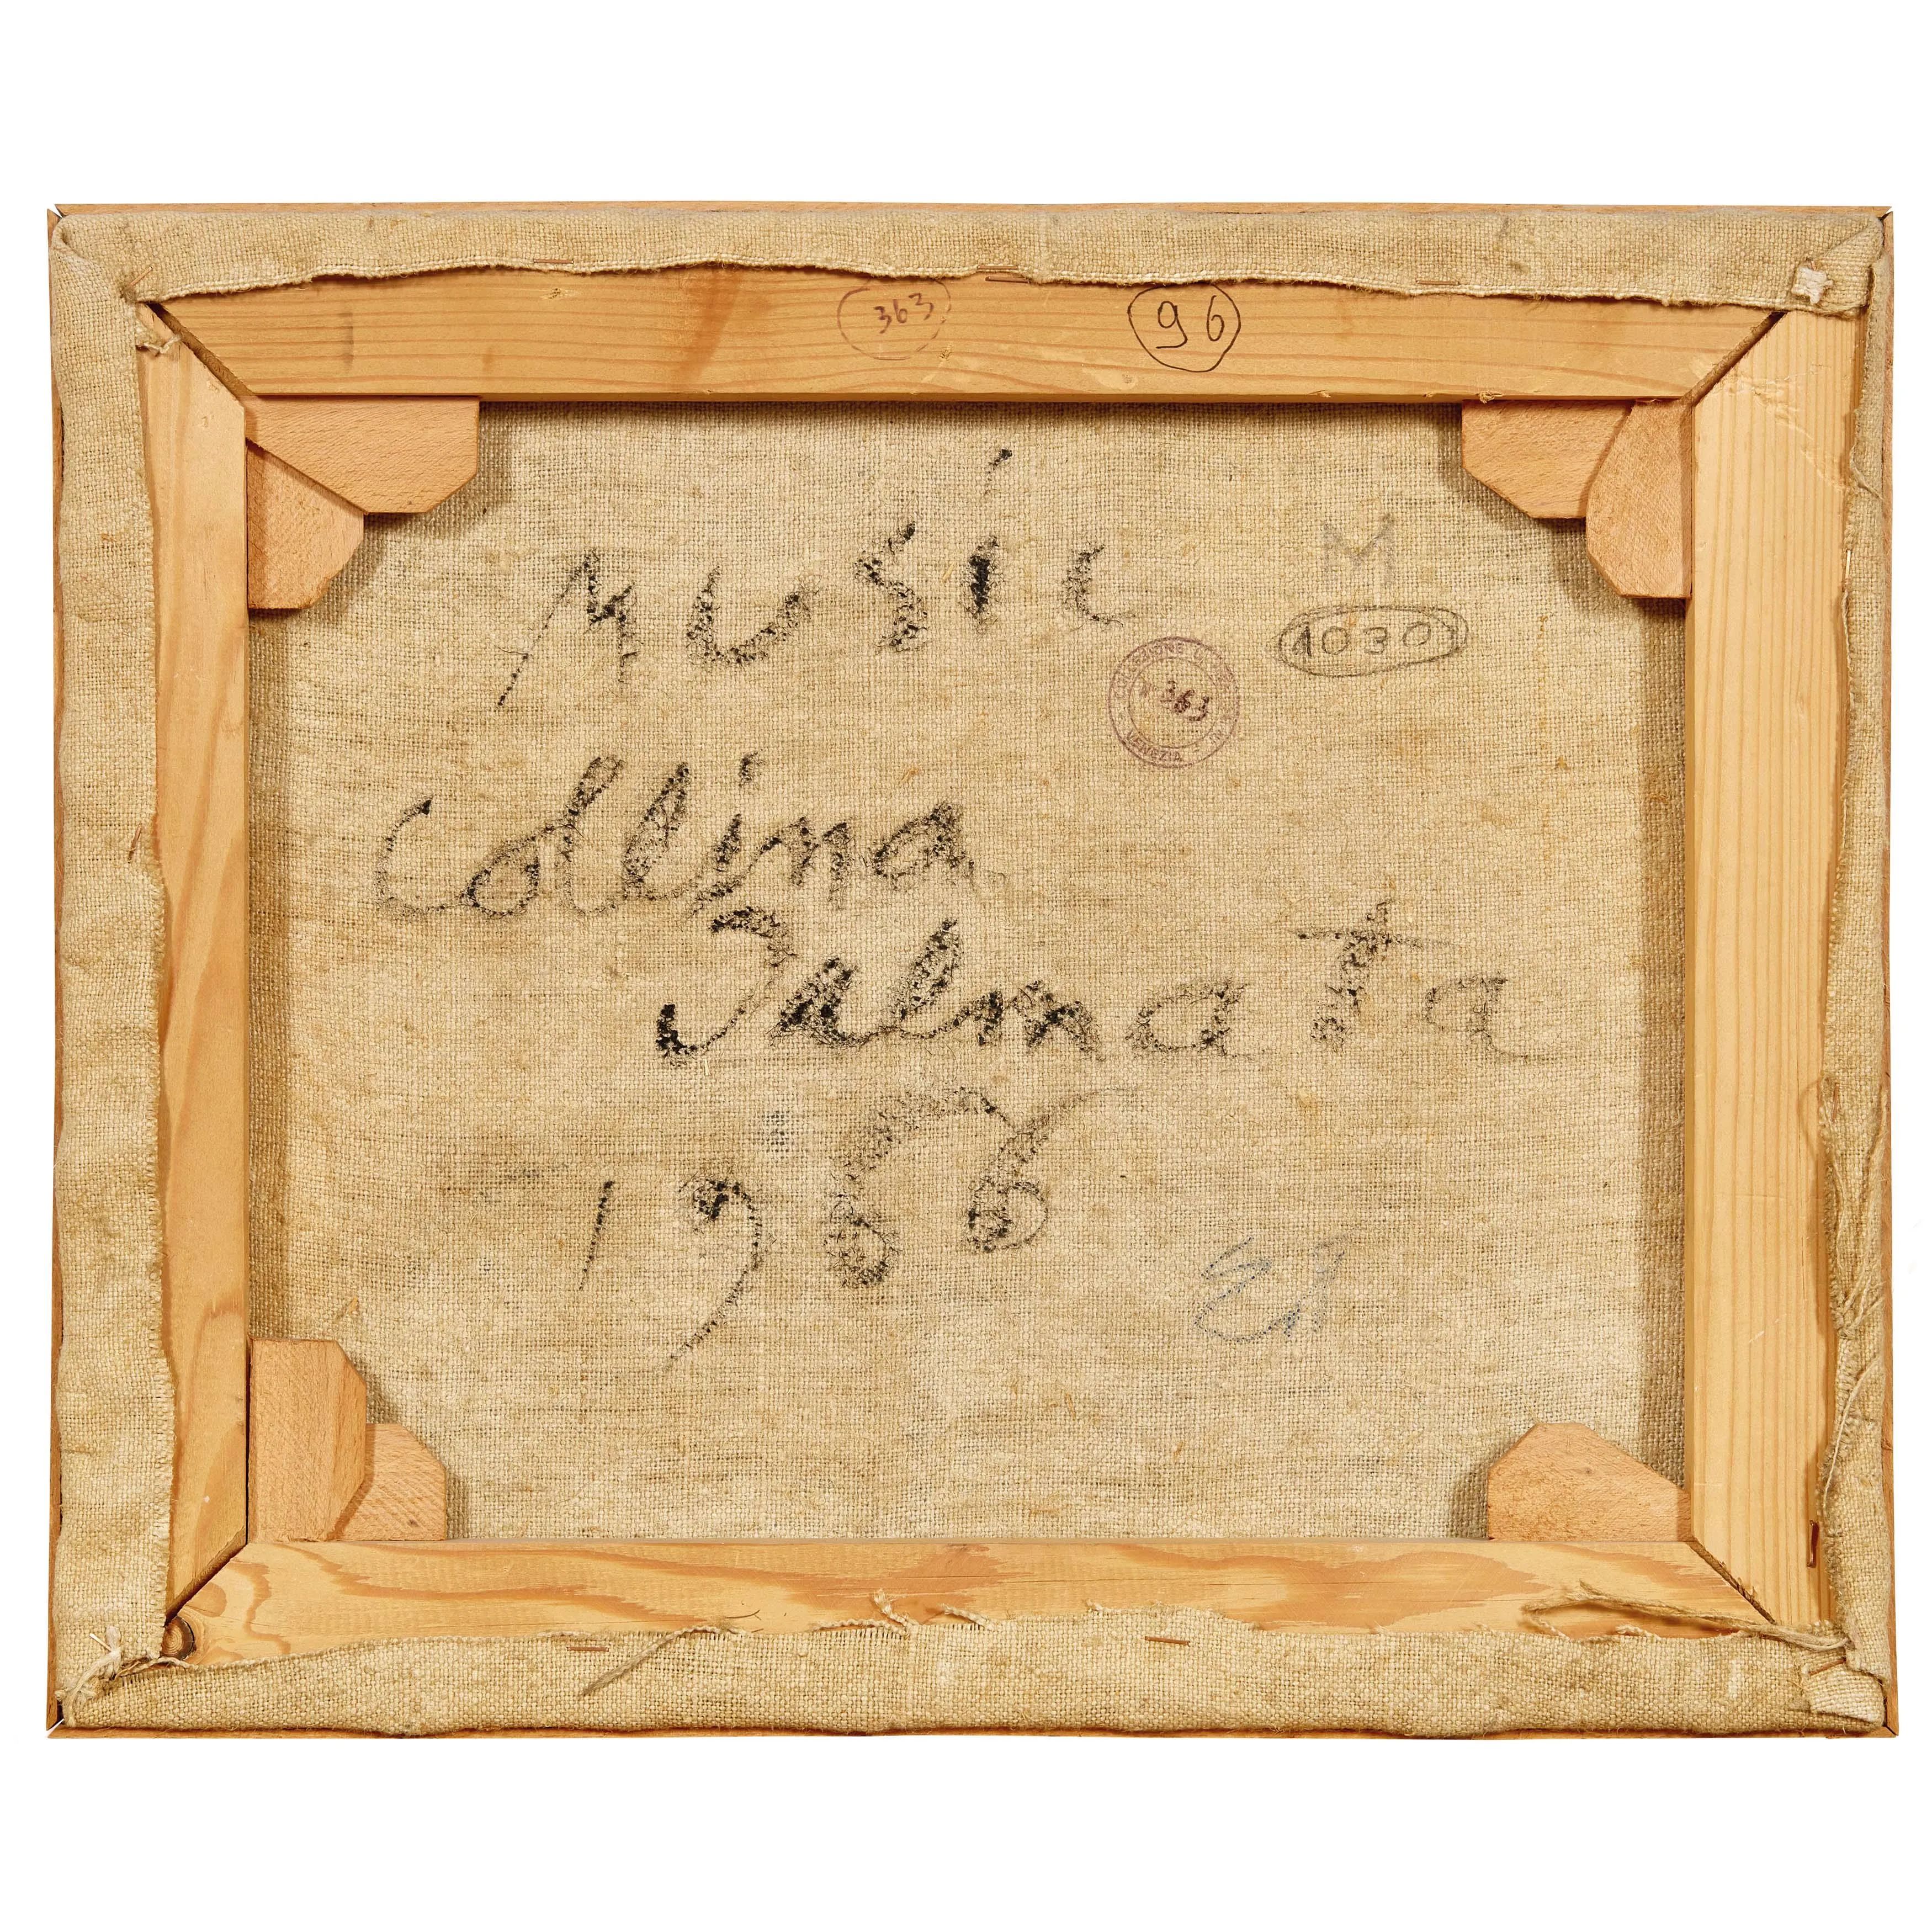 363 96
MUSIC
M
1030
N° 363
VENEZIA
Collina
Dalmata
1966